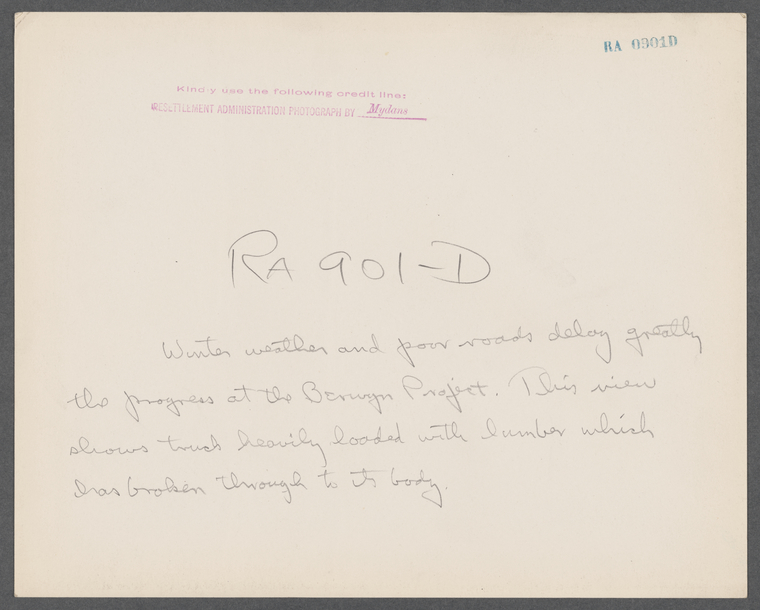 RA 0901D
Kind y use the following credit line:
RESETTLEMENT ADMINISTRATION PHOTOGRAPH BY Mydans
RA 901-D
Winter weather and poor roads delay greatly
the progress at the Berwyn Project. This view
shows truck heavily loaded with lumber which
has broken through to its body.